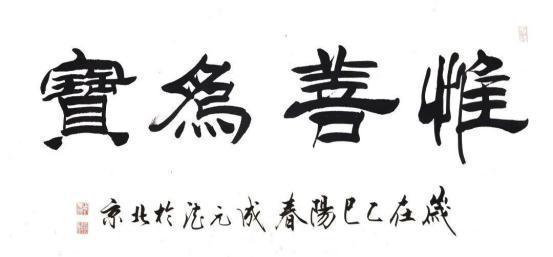 惟善為寶
歲在乙巳陽春成元於北京